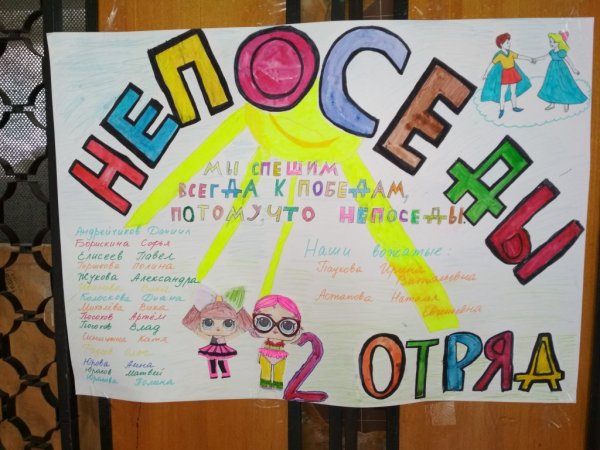 НЕПОСЕДЫ
МЫ СПЕШИМ
ВСЕГДА К ПОБЕДАМ,
ПОТОМУЧТО НЕПОСЕДЫ.
Андрейчиков Даниил
Борискина Софья
Елисеев Павел
Горшкова Полина
Жукова Александра
Иванова
Колоскова Диана
Михалёва Вика
Посохов Артём
Посохов Влад
Синицина Катя
Юрова Анна
Юраков Матвей
Юракова Полина
Наши вожатые:
Паукова Ирина
Витальевна
Астапова Наталья
Евгеньевна
2 ОТРЯД